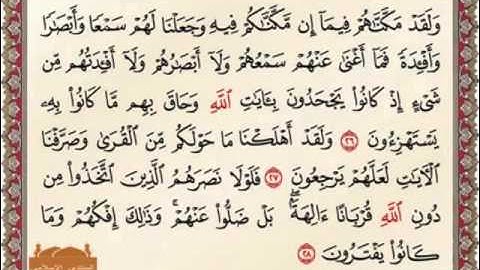 وَلَقَدْ مَكَّنَّٰهُمْ فِيمَآ إِن مَّكَّنَّٰكُمْ فِيهِ وَجَعَلْنَا لَهُمْ سَمْعًا وَأَبْصَٰرًا
وَأَفْـِٔدَةً فَمَآ أَغْنَىٰ عَنْهُمْ سَمْعُهُمْ وَلَآ أَبْصَٰرُهُمْ وَلَآ أَفْـِٔدَتُهُم مِّن
شَىْءٍ إِذْ كَانُوا۟ يَجْحَدُونَ بِـَٔايَٰتِ ٱللَّهِ وَحَاقَ بِهِم مَّا كَانُوا۟ بِهِۦ
يَسْتَهْزِءُونَ ٢٦ وَلَقَدْ أَهْلَكْنَا مَا حَوْلَكُم مِّنَ ٱلْقُرَىٰ وَصَرَّفْنَا
ٱلْءَايَٰتِ لَعَلَّهُمْ يَرْجِعُونَ ٢٧ فَلَوْلَا نَصَرَهُمُ ٱلَّذِينَ ٱتَّخَذُوا۟ مِن
دُونِ ٱللَّهِ قُرْبَانًا ءَالِهَةًۢ ۖ بَلْ ضَلُّوا۟ عَنْهُمْ ۚ وَذَٰلِكَ إِفْكُهُمْ وَمَا
كَانُوا۟ يَفْتَرُونَ ٢٨